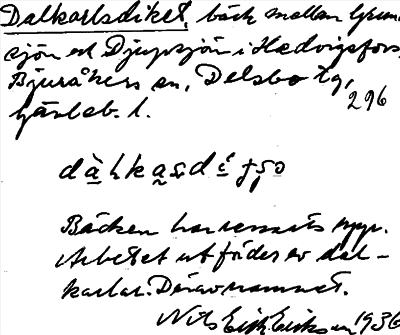 Dalkarlsdiket, bäck mellan Grun-
sjön och Djupsjön i Hedvigsfors,
Bjuråkers sn, Delsbo tg,
Gävleb. l.
296
Bäcken har rensats upp.
Arbetet utfördes av dal-
karlar. Därav namnet.
Nils Erik Eriksson 1936